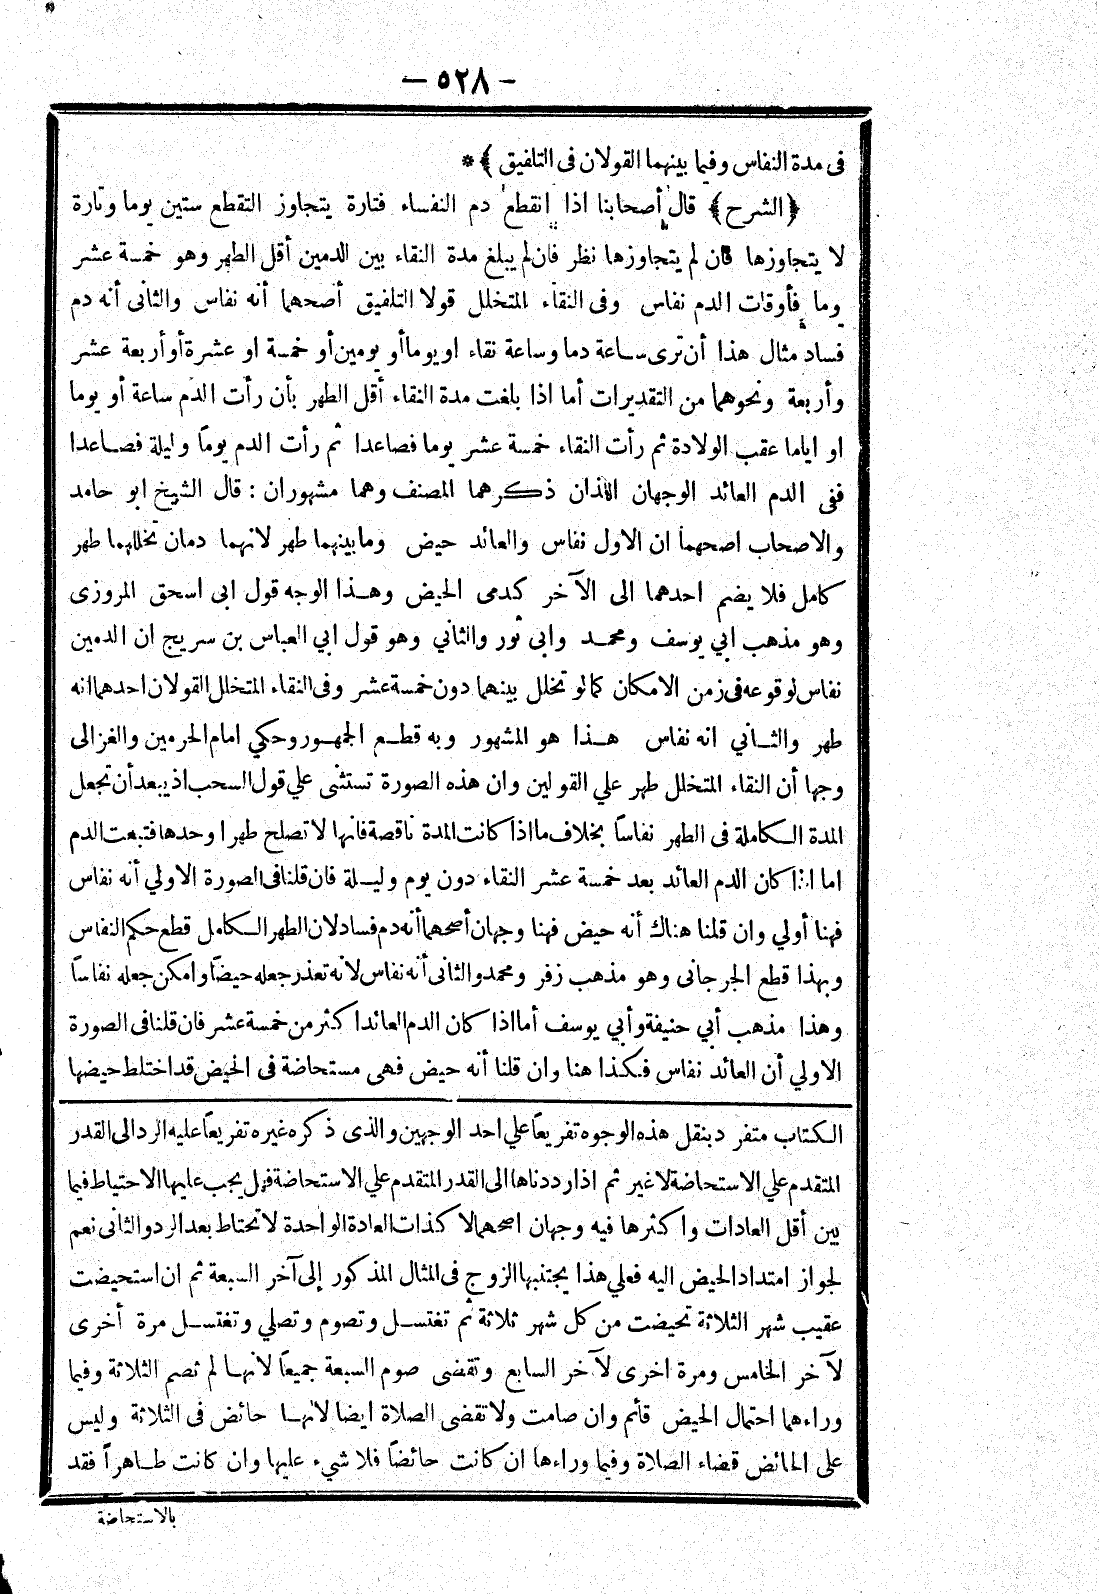 — ٥٢٨ —
فى مدة النفاس وفيما بينهما القولان فى التلفيق ﴾*
﴿الشرح﴾ قال أصحابنا اذا انقطع دم النفساء فتارة يتجاوز التقطع ستين يوما وتارة
لا يتجاوزها فان لم يتجاوزها نظر فان لم يبلغ مدة النقاء بين الدمين أقل الطهر وهو خمسة عشر
يوما فأوقات الدم نفاس وفى النقاء المتخلل قولا التلفيق أصحهما أنه نفاس والثانى أنه دم
فساد مثال هذا أن ترى ساعة دما وساعة نقاء او يوما أو يومين أو خمسة او عشرة أو أربعة عشر
وأربعة ونحوهما من التقديرات أما اذا بلغت مدة النقاء أقل الطهر بأن رأت الدم ساعة أو يوما
او اياما عقب الولادة ثم رأت النقاء خمسة عشر يوما فصاعدا ثم رأت الدم يومًا وليلة فصاعدا
ففى الدم العائد الوجهان اللذان ذكرهما المصنف وهما مشهوران : قال الشيخ ابو حامد
والاصحاب اصحهما ان الاول نفاس والعائد حيض وما بينهما طهر لانهما دمان تخللهما طهر
كامل فلا يضم احدهما الى الآخر كدمى الحيض وهذا الوجه قول ابى اسحق المروزى
وهو مذهب ابي يوسف ومحمد وابى ثور والثاني وهو قول ابي العباس بن سريج ان الدمين
نفاس لوقوعه فى زمن الامكان كما لو تخلل بينهما دون خمسة عشر وفى النقاء المتخلل القولان احدهما انه
طهر والثانى انه نفاس هذا هو المشهور وبه قطع الجمهور وحكي امام الحرمين والغزالى
وجها أن النقاء المتخلل طهر علي القولين وان هذه الصورة تستثنى علي قول السحب اذ يبعد أن تجعل
المدة الكاملة فى الطهر نفاسًا بخلاف ما اذا كانت المدة ناقصة فانها لا تصلح طهرا وحدها فتبعت الدم
اما اذا كان الدم العائد بعد خمسة عشر النقاء دون يوم وليلة فان قلنا فى الصورة الاولي أنه نفاس
فهنا أولي وان قلنا هناك أنه حيض فهنا وجهان أصحهما أنه دم فساد لان الطهر الكامل قطع حكم النفاس
وبهذا قطع الجرجانى وهو مذهب زفر ومحمد والثانى أنه نفاس لانه تعذر جعله حيضًا وامكن جعله نفاسًا
وهذا مذهب أبي حنيفة وأبي يوسف أما اذا كان الدم العائد اكثر من خمسة عشر فان قلنا فى الصورة
الاولي أن العائد نفاس فكذا هنا وان قلنا أنه حيض فهى مستحاضة فى الحيض قد اختلط حيضها
الكتاب متفرد بنقل هذه الوجوه تفريعًا علي احد الوجهين والذى ذكره غيره تفريعًا عليه الرد الى القدر
المتقدم علي الاستحاضة لا غير ثم اذا رددناها الى القدر المتقدم علي الاستحاضة فهل يجب عليها الاحتياط فيما
بين أقل العادات واكثرها فيه وجهان اصحهما لا كذات العادة الواحدة لا تحتاط بعد الرد والثانى نعم
لجواز امتداد الحيض اليه فعلي هذا يجتنبها الزوج فى المثال المذكور إلى آخر السبعة ثم ان استحيضت
عقيب شهر الثلاثة تحيضت من كل شهر ثلاثة ثم تغتسل وتصوم وتصلي وتغتسل مرة أخرى
لآخر الخامس ومرة اخرى لآخر السابع وتقضى صوم السبعة جميعًا لانها لم تصم الثلاثة وفيما
وراءهما احتمال الحيض قائم وان صامت ولا تقضى الصلاة ايضا لانها حائض فى الثلاثة وليس
على الحائض قضاء الصلاة وفيما وراءها ان كانت حائضًا فلا شيء عليها وان كانت طاهراً فقد
بالاستحاضة